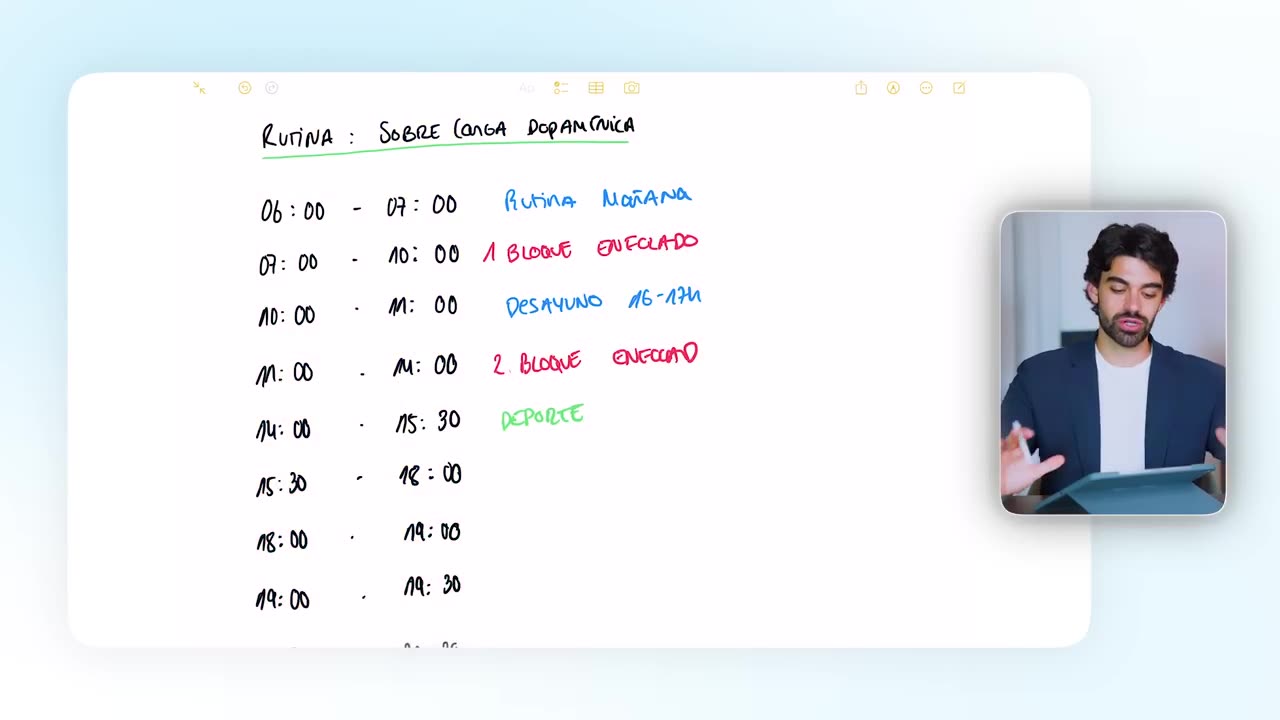 RUTINA : SOBRE CARGA DOPAMÍNICA
06:00 - 07:00 RUTINA MAÑANA
07:00 - 10:00 1 BLOQUE ENFOCADO
10:00 - 11:00 DESAYUNO 16-17h
11:00 - 14:00 2. BLOQUE ENFOCAD
14:00 - 15:30 DEPORTE
15:30 - 18:00
18:00 - 19:00
19:00 - 19:30